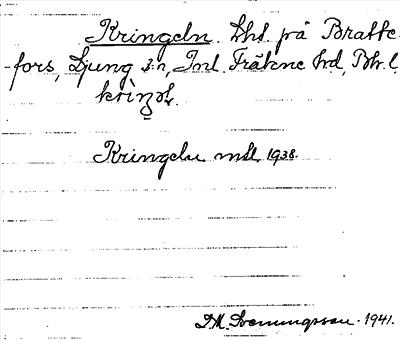 Kringeln. Lht. på Bratte-
-fors, Ljung s:n, Inl. Fräkne hd, Bh. l.
Kringeln msl. 1938.
D.M. Svenungsson. 1941.